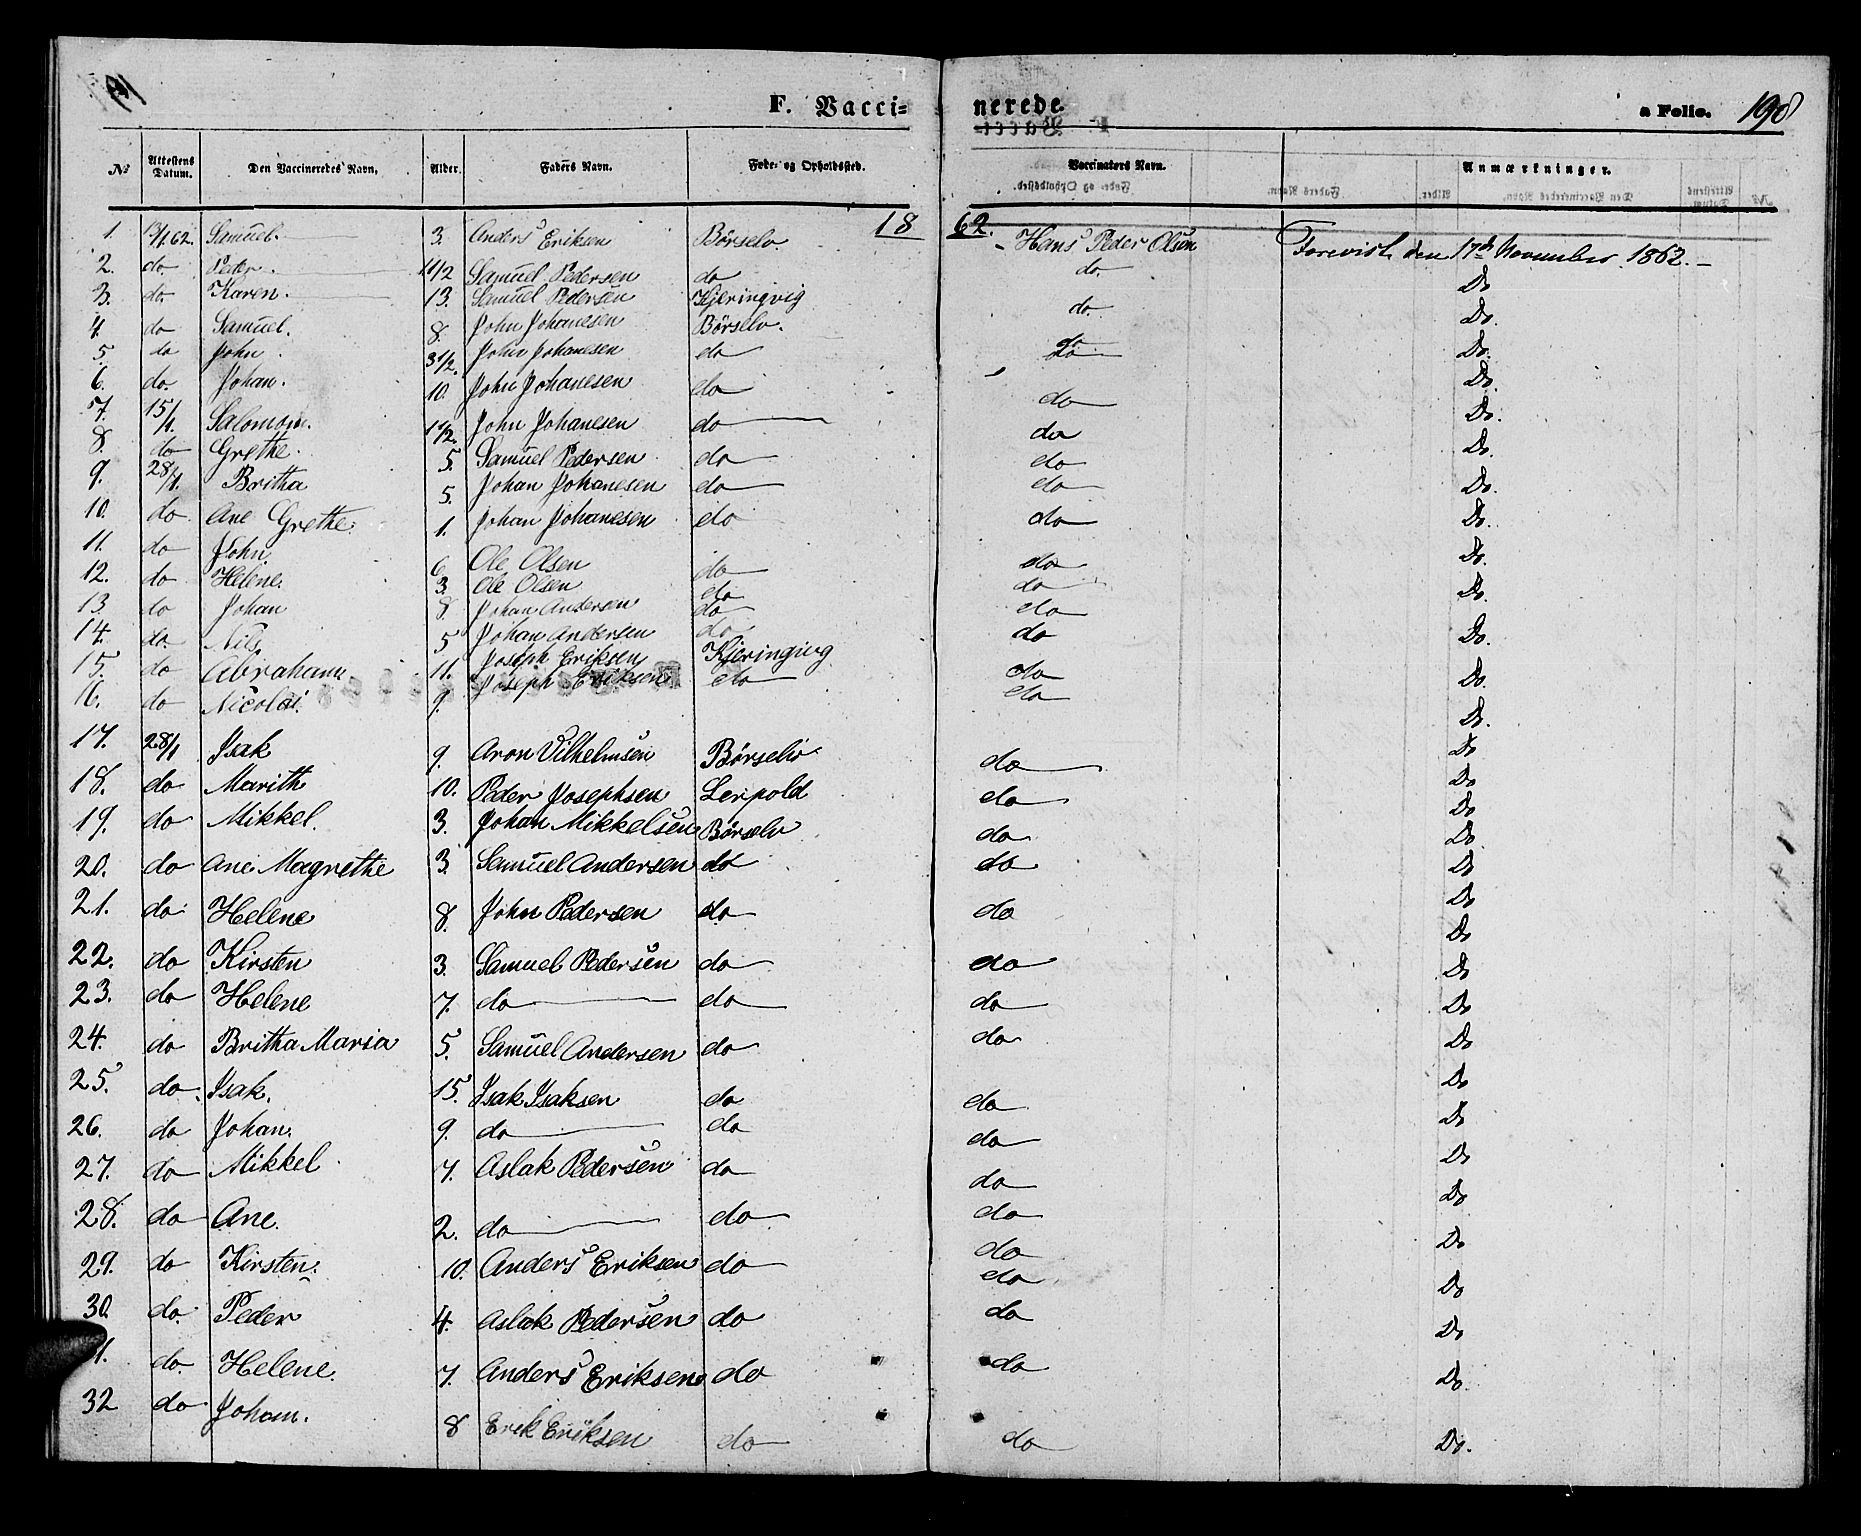 F. Vaccinerede. a Folio. 198
№ Attestens Datum. Den Vaccineredes Navn, Alder. Faders Navn. Føde- og Opholdssted. Vaccinators Navn. Anmærkninger.
1862.
1. 13/1.62. Samuel. 3. Anders Eriksen Börselv. Hans Peder Olsen Forevist den 17de November 1862.
2. do Peder. 1 1/2 Samuel Pedersen do do Do
3. do Karen. 13. Samuel Pedersen Kjeringvig do Do.
4. do Samuel. 8. John Johanesen Börselv. do Do.
5. do John. 3 1/2. John Johanesen do do Do.
6. do Johan. 10. John Johanesen do do Do.
7. 15/1. Salomon. 1 1/2. John Johanesen do do Do.
8. do Grethe. 5. Samuel Pedersen do do Do.
9. 28/1. Britha 5. Johan Johanesen do do Do.
10. do Ane Grethe. 1. Johan Johanesen do do Do.
11. do John 6 Ole Olsen do do Do.
12. do Helene. 3. Ole Olsen do do Do.
13. do Johan 8 Johan Andersen do do Do.
14. do. Nils 5 Johan Andersen do do Do.
15. do Abraham 11. Joseph Eriksen Kjeringvig do Do.
16. do Nicolai. 9. Joseph Eriksen do do Do
17. 28/1 Isak 9. Aron Vilhelmsen Börselv do Do
18. do Marith 10. Peder Josephsen Lerpold do Do
19. do Mikkel. 3. Johan Mikkelsen Börselv do Do
20. do Ane Magrethe 3. Samuel Andersen do do Do
21. do Helene 8. John Pedersen do do Do
22. do Kirsten 3. Samuel Pedersen do do Do
23. do Helene 7. do do do Do
24. do Britha Maria 5. Samuel Andersen do do Do
25. do Isak. 15. Isak Isaksen do do Do
26. do Johan. 9. do do do Do
27. do Mikkel 7. Aslak Pedersen do do Do
28. do Ane. 2. do do do Do
29. do Kirsten. 10. Anders Eriksen do do Do
30. do. Peder 4. Aslak Pedersen do do Do
1. do. Helene. 7. Anders Eriksen do do Do.
32 do Johan. 8 Erik Eriksen do do Do.